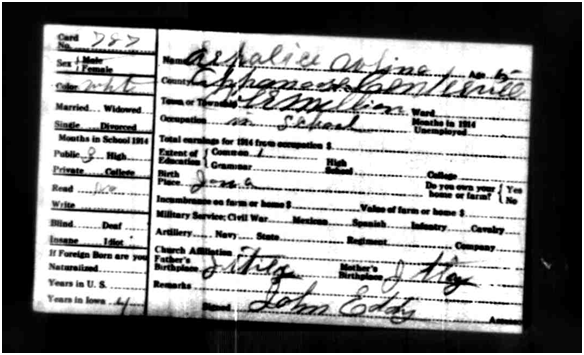 Card No. 787
Name Age 5
Sex Male Female
County Appanoose Centerville
Color
Town or Township Vermillion Ward
Married Widowed
Occupation in school Months in 1914 Unemployed
Single Divorced
Total earnings for 1914 from occupation $
Months in School 1914
Extent of Education Common 1 High School College
Public 3 High
Grammar
Private College
Birth Place Iowa Do you own your home or farm? Yes No
Read
Incumbrance on farm or home $ Value of farm or home $
Write
Military Service; Civil War Mexican Spanish Infantry Cavalry
Blind Deaf
Artillery Navy State Regiment Company
Insane Idiot
Church Affiliation
If Foreign Born are you Naturalized
Father's Birthplace Italy Mother's Birthplace Italy
Years in U. S.
Remarks
Years in Iowa 4
Signed John Eddy Assessor